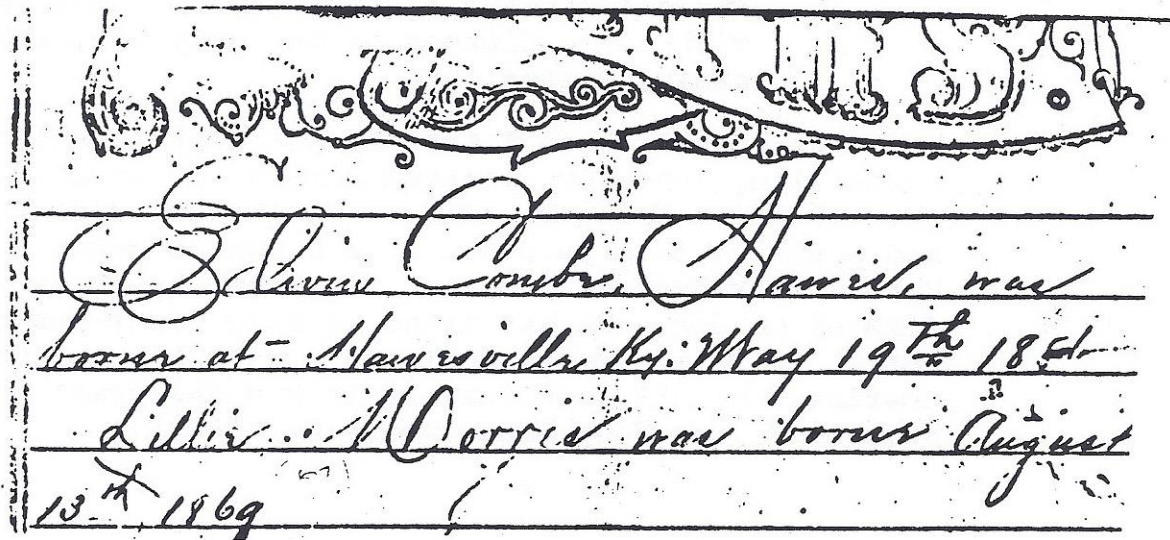 Combs, Hawes, was
borne at Hawesville, Ky. May 19th
Lillie Morris was borne August
13th 1869